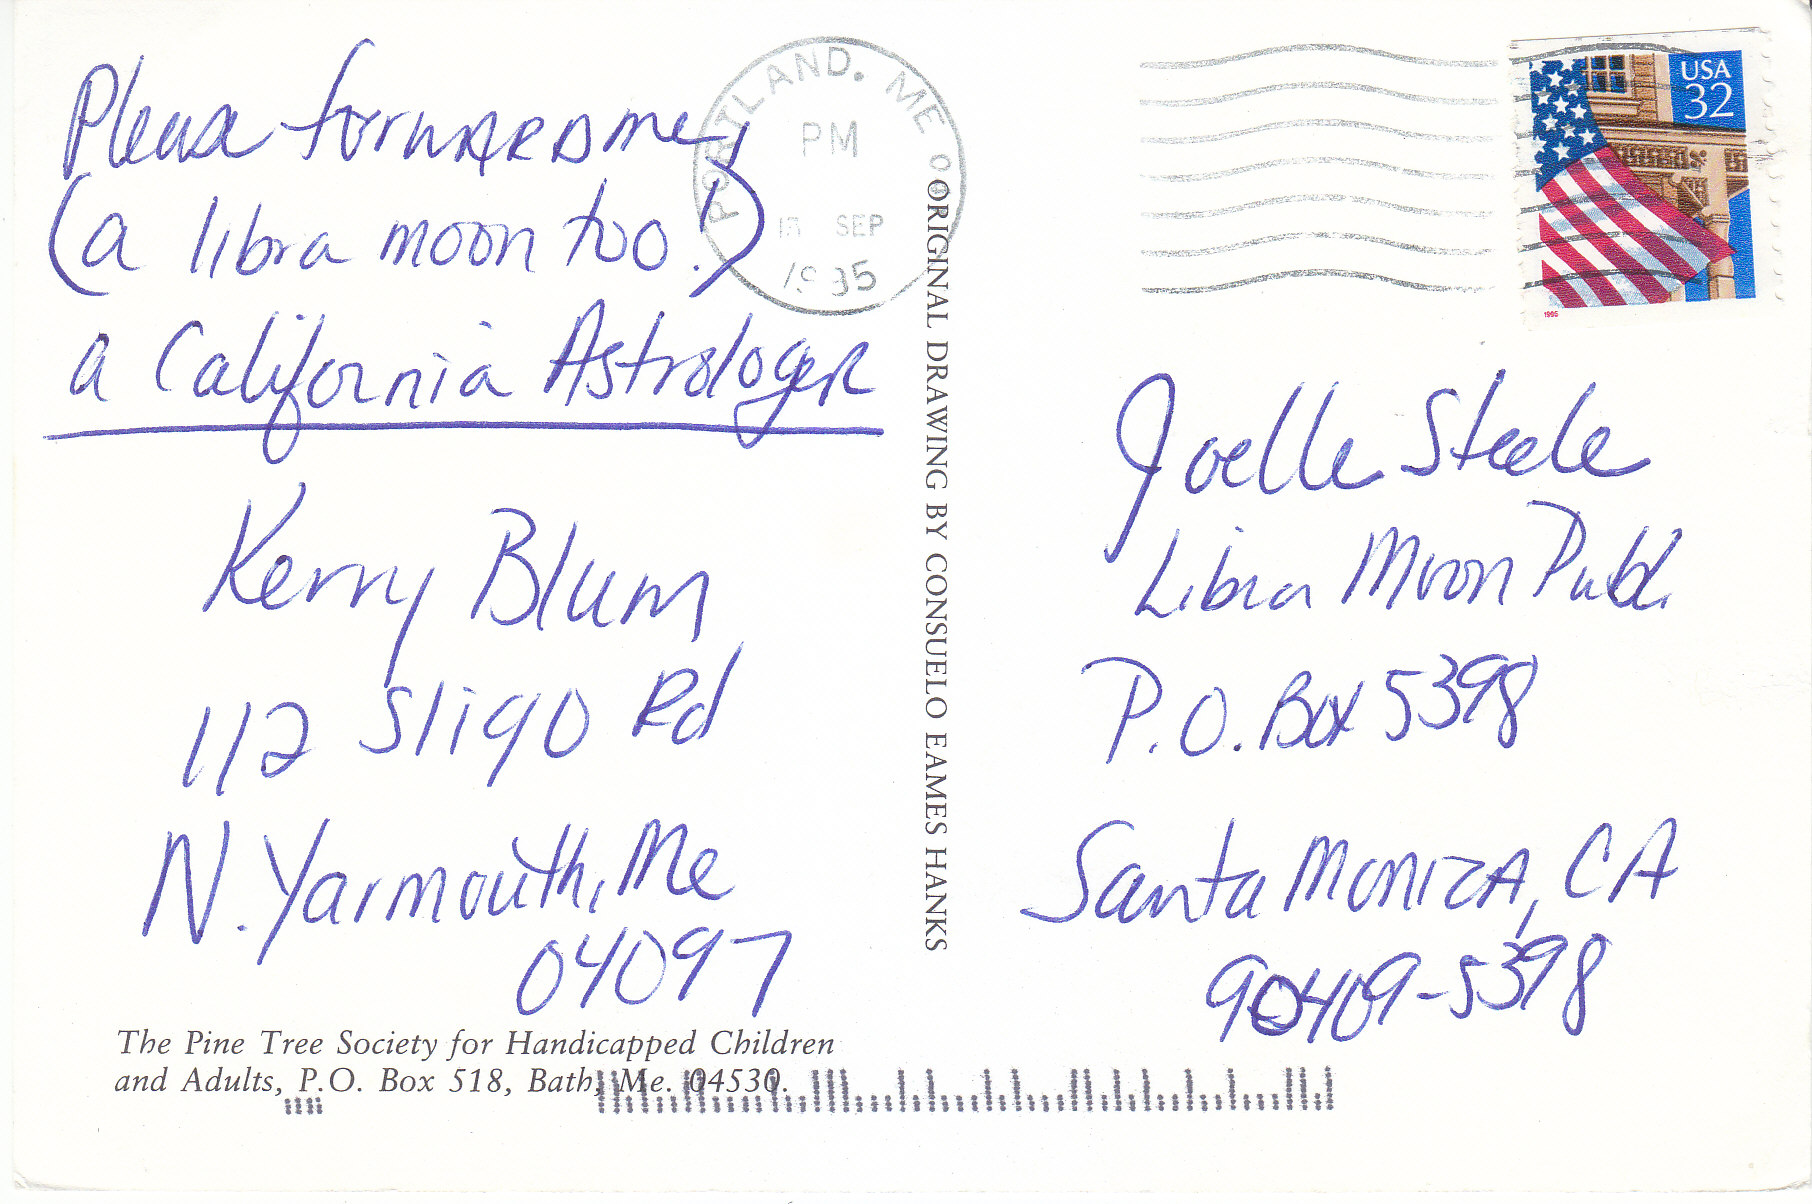 Please forward me,
(a libra moon too!)
a California Astrologer
Kerry Blum
112 Sligo Rd
N. Yarmouth, Me
04097
The Pine Tree Society for Handicapped Children
and Adults, P.O. Box 518, Bath, Me. 04530.
PORTLAND, ME
PM
SEP
1995
ORIGINAL DRAWING BY CONSUELO EAMES HANKS
USA
32
1995
Joelle Steele
Libra Moon Publ.
P.O. Box 5398
Santa Monica, CA
90409-5398